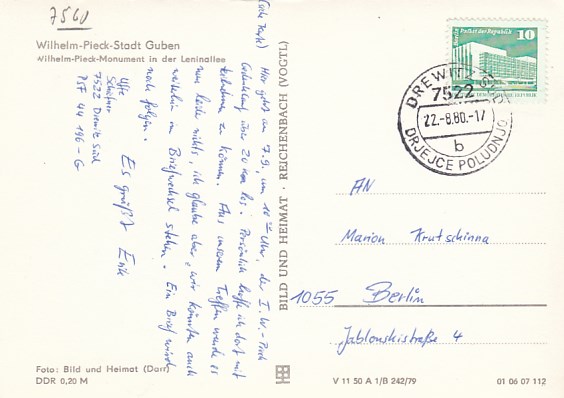 7560
Wilhelm-Pieck-Stadt Guben
Wilhelm-Pieck-Monument in der Leninallee
(siehe Karte) Hier geht am 7.9. um 10 Uhr der I. W.-Pieck
Gedenklauf über 20 km los. Persönlich hoffe ich dort mit
teilnehmen zu können. Aus unserem Treffen wurde es
nun leider nichts, ich glaube aber, wir könnten auch
weiterhin im Briefwechsel stehen. Ein Brief wird
noch folgen.
Es grüßt Erik
Uffz.
7522 Drewitz Süd
PSF 44 196 - G
Foto: Bild und Heimat (Darr)
DDR 0,20 M
BILD UND HEIMAT · REICHENBACH (VOGTL)
Palast der Republik
10
DEUTSCHE DEMOKRATISCHE REPUBLIK
DREWITZ SÜD
7522
22.-8.80.-17
b
DRJEJCE POŁUDNJO
AN
Marion Krutschinna
1055 Berlin
Jablonskistraße 4
V 11 50 A 1/B 242/79
01 06 07 112